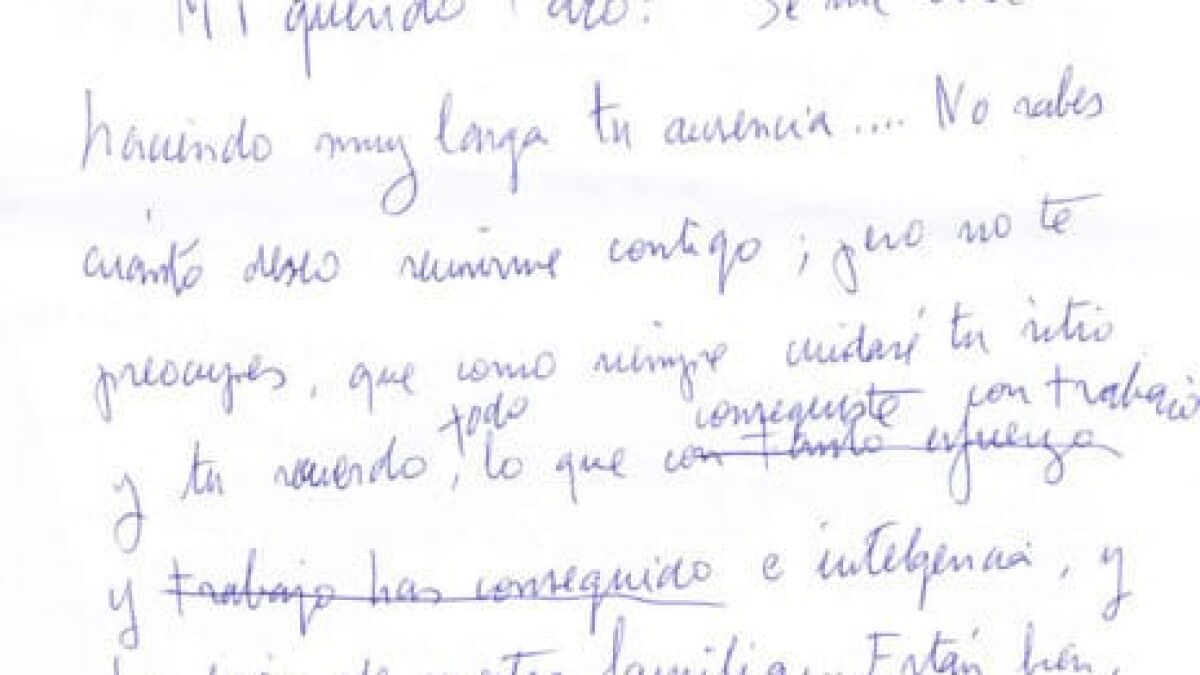 Mi querido Paro: Se me está
haciendo muy larga tu ausencia.... No sabes
cuánto deseo reunirme contigo; pero no te
preocupes, que como siempre cuidaré tu sitio
todo conseguiste con trabajo
y tu recuerdo, lo que con tanto esfuerzo
y trabajo has conseguido e inteligencia, y
de nuestra familia. Están bien,